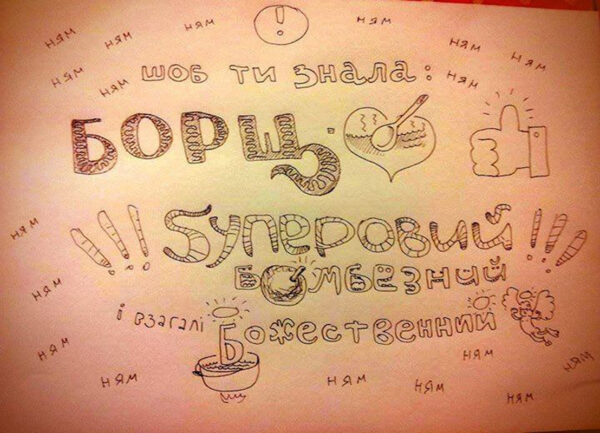 !
ням ням ням ням ням
ням ням шоб ти знала: ням ням
БОРЩ -
ням
!!! Sуперовий !!!
бомбезний
ням
і взагалі Божественний
ням ням ням
ням ням ням ням